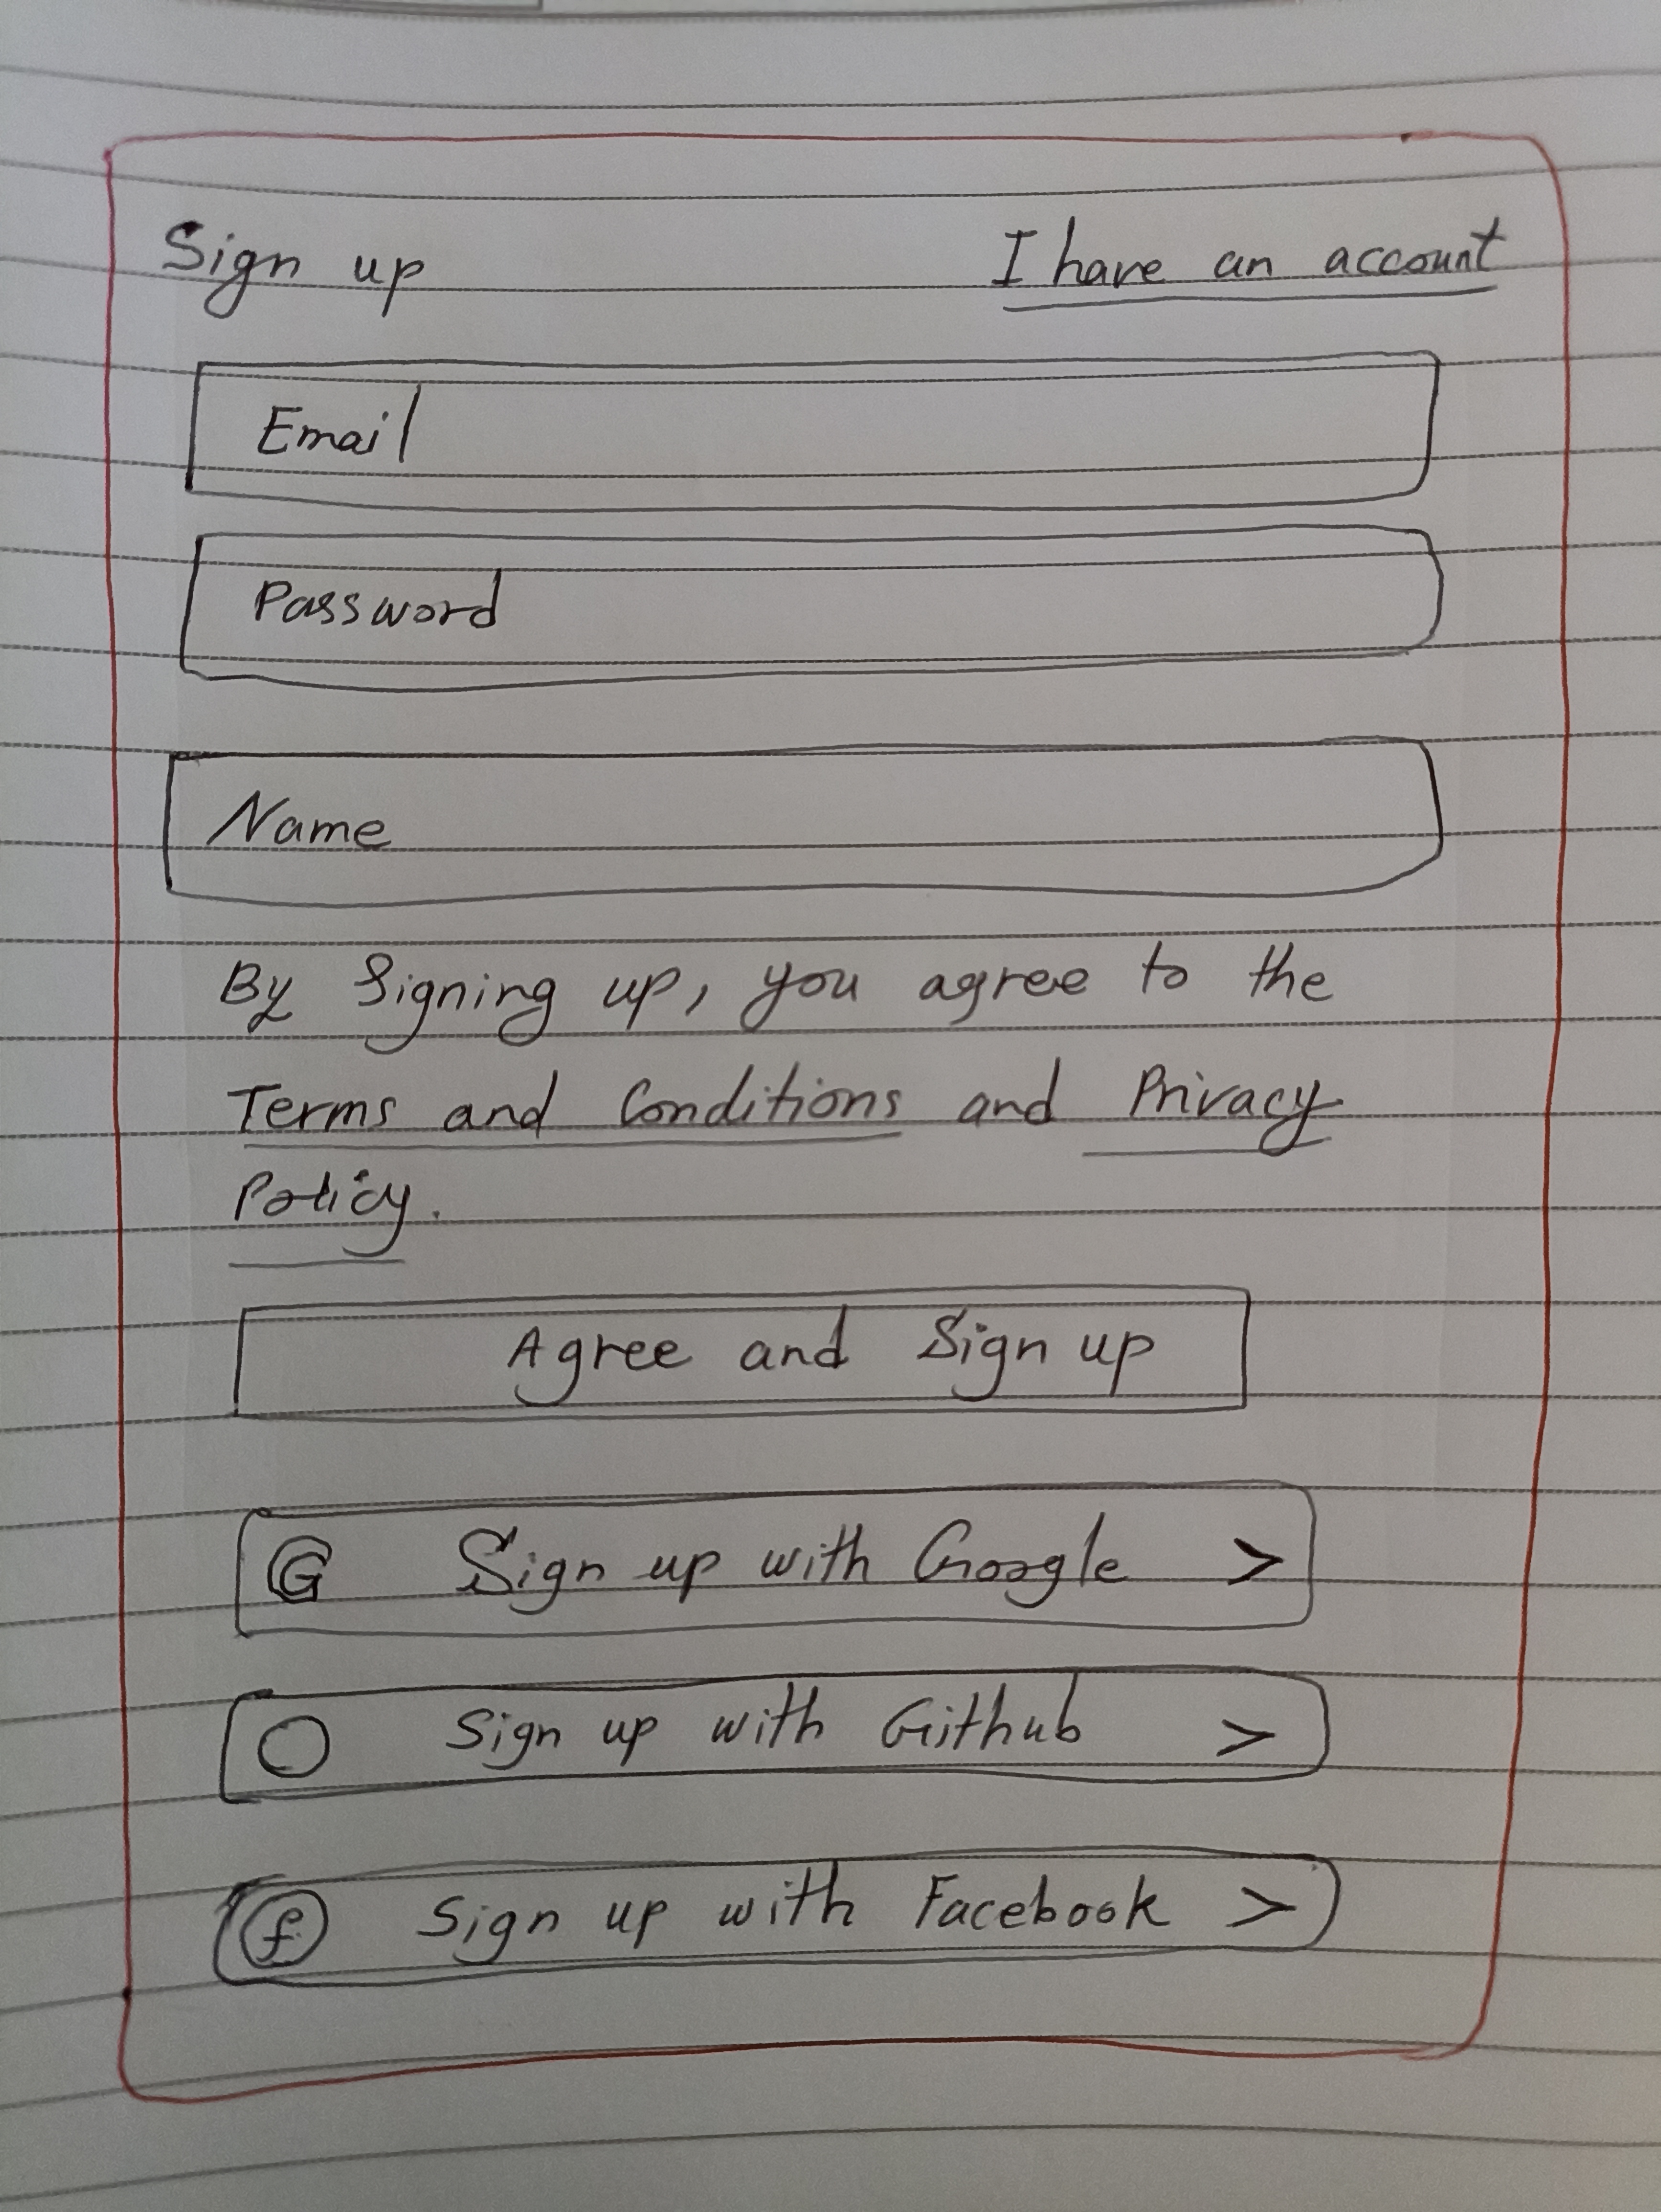 Sign up
I have an account
Email
Password
Name
By Signing up, you agree to the
Terms and Conditions and Privacy
Policy.
Agree and Sign up
G Sign up with Google >
Sign up with Github >
f Sign up with Facebook >